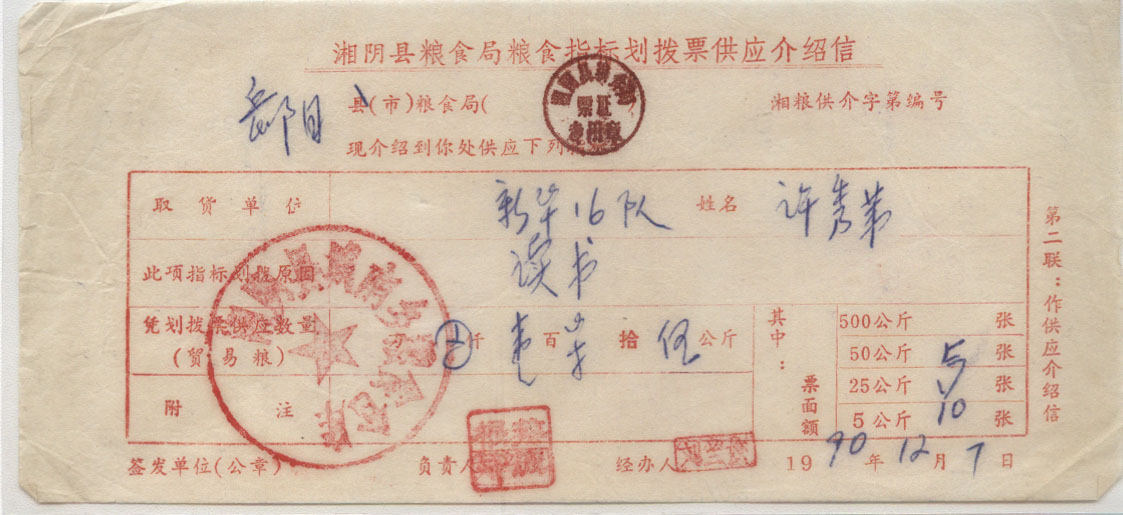 湘阴县粮食局粮食指标划拨票供应介绍信
岳阳 县(市)粮食局(
湘粮供介字第编号
现介绍到你处供应下列
取货单位 新华16队 姓名 许
此项指标划拨原因 读书
凭划拨票供应数量
(贸易粮)
万 仟 壹 百 拾 伍 公斤
附注
其中:
票面额
500公斤 张
50公斤 张
25公斤 5 张
5公斤 10 张
签发单位(公章) 负责人 经办人 1990年12月7日
第二联:作供应介绍信